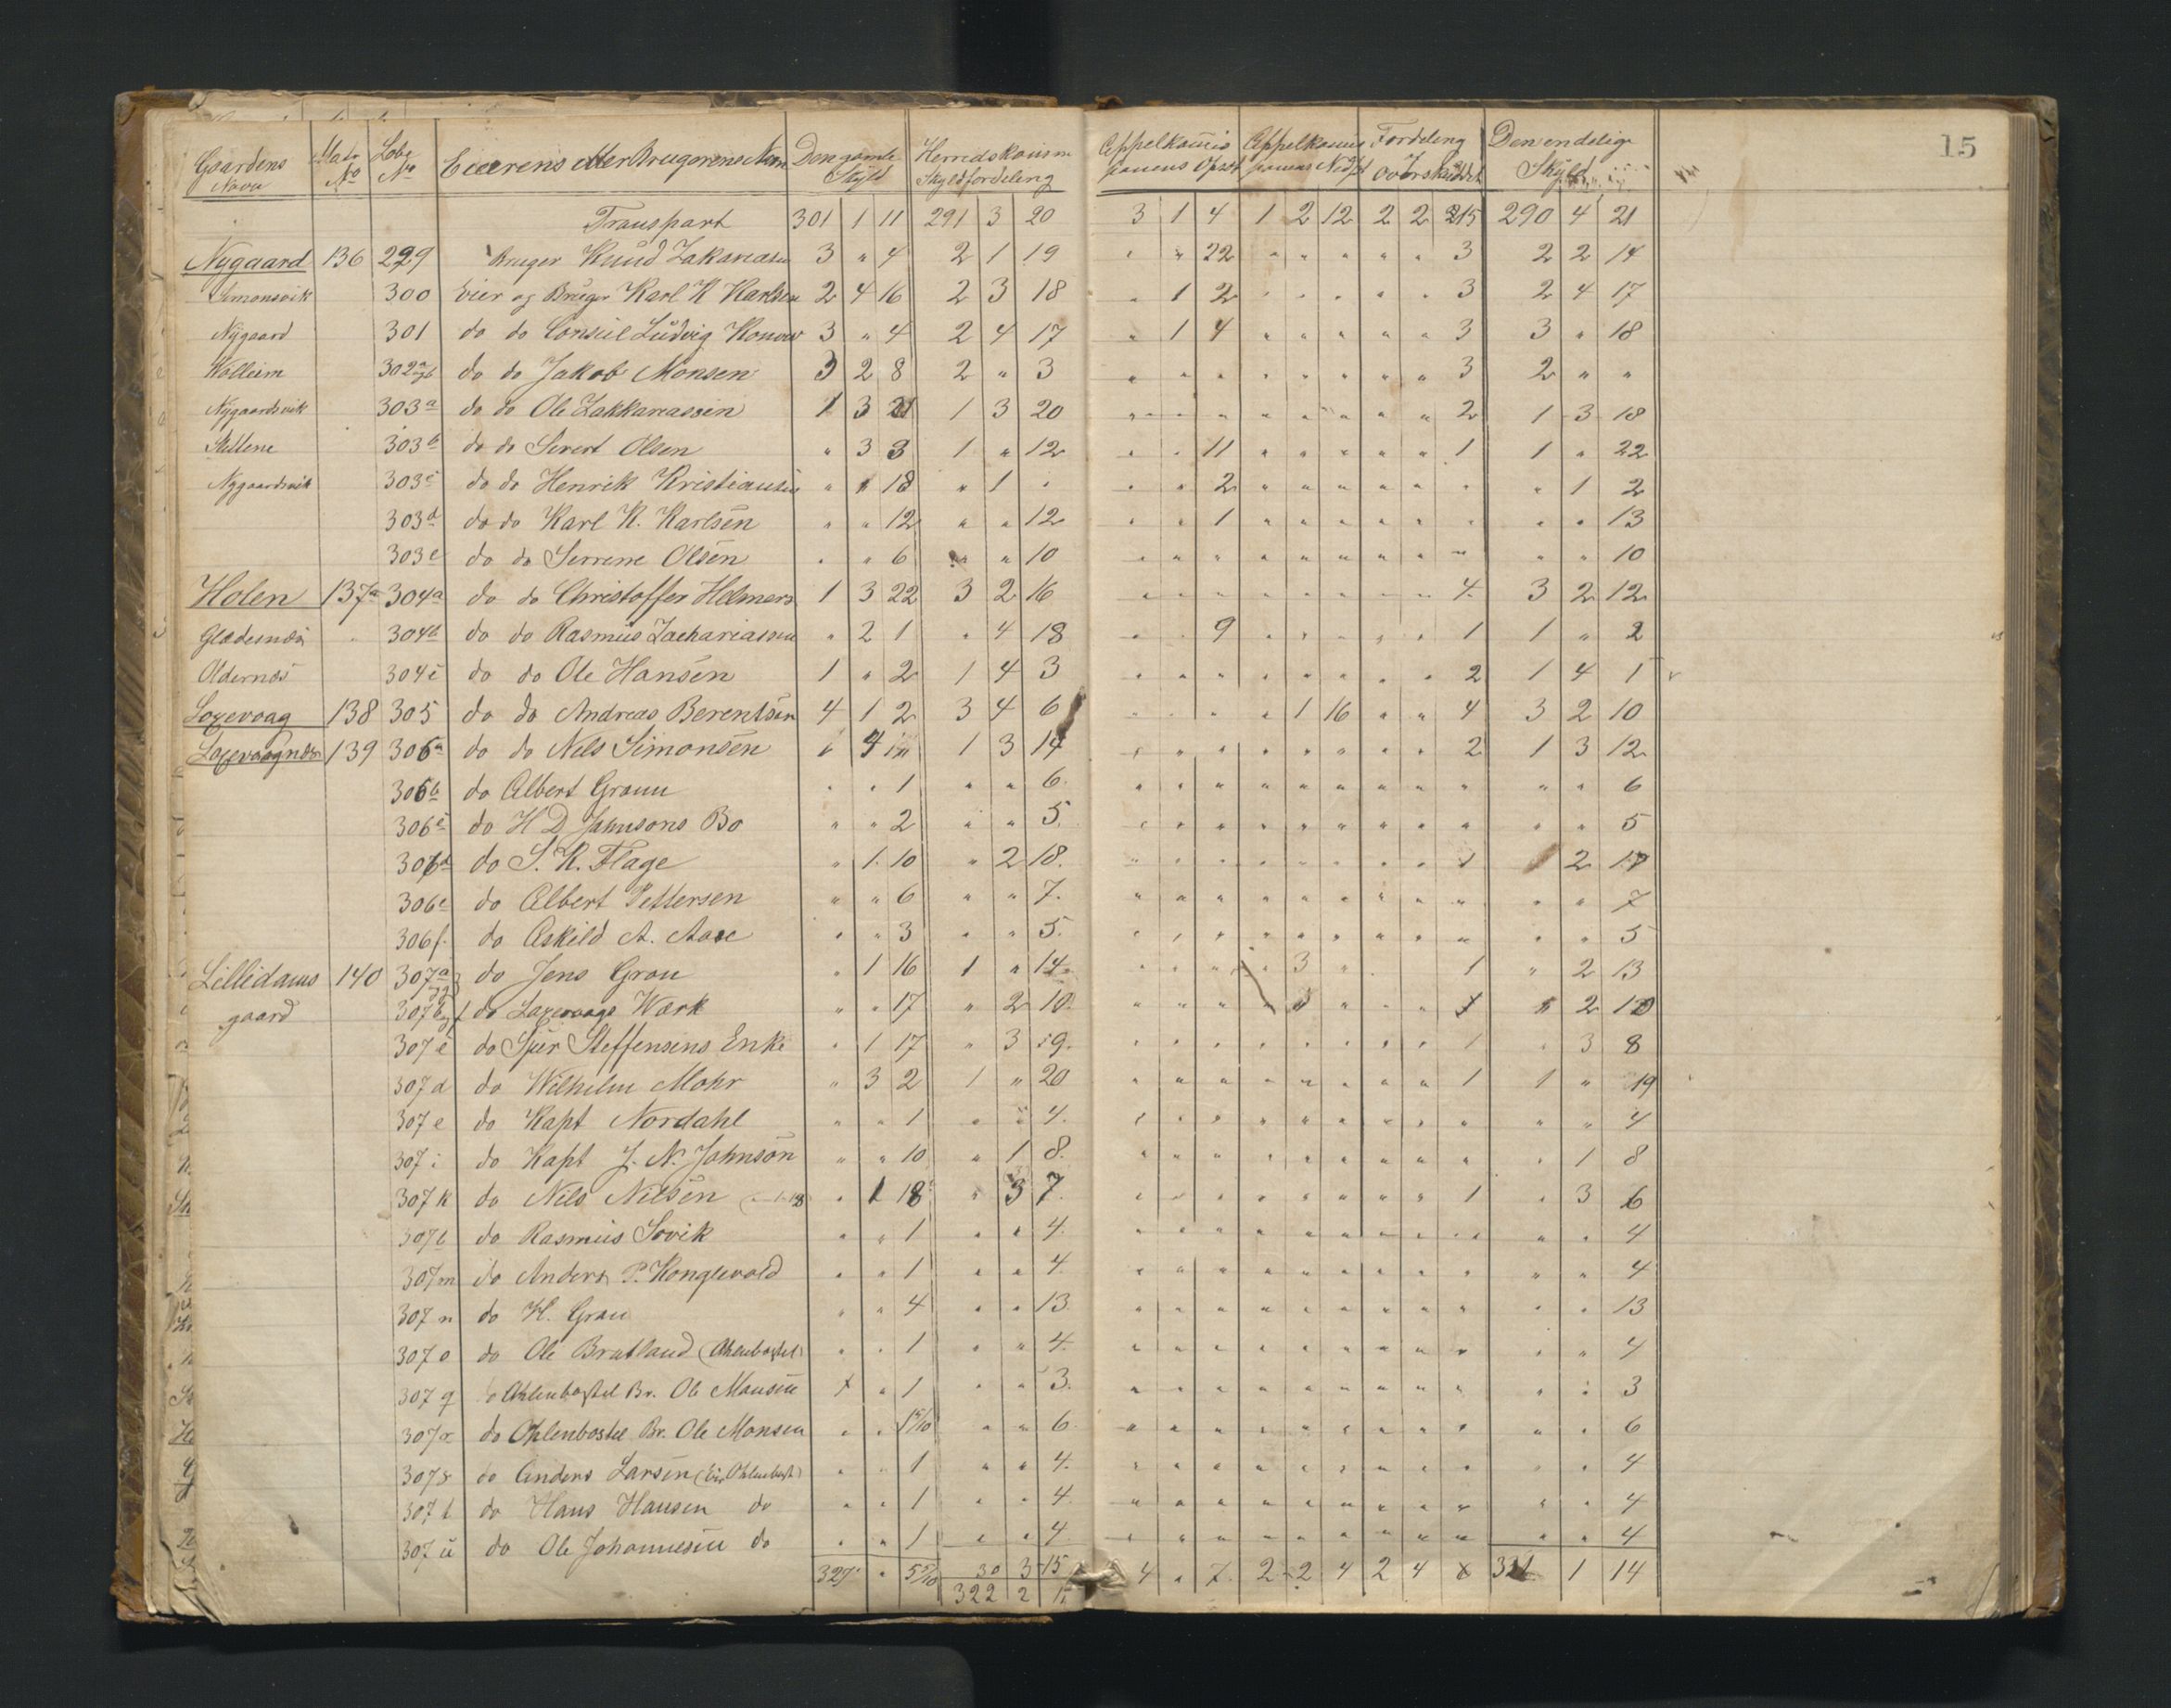 15
Gaardens Navn | Matr No | Løbe No | Eierens eller Brugerens Navn | Den gamle Skyld | Herredskomm Skyldfordeling | Appelkomissionens Opsæt | Appelkomissionens Neds | Fordeling Overskuddet | Den endelige Skyld
Transport 301 1 11 291 3 20 3 1 4 1 2 12 2 2 215 290 4 21
Nygaard 136 299 Bruger Knud Zakariasen 3 " 4 2 1 19 " " 22 " " " " " 3 2 2 14
Simonsvik 300 Eier og Bruger Karl K Karlsen 2 4 16 2 3 18 " 1 2 " " " " " 3 2 4 17
Nygaard 301 do do Consul Ludvig Konow 3 " 4 2 4 17 " 1 4 " " " " " 3 3 " 18
Wolleim 302 do do Jakob Monsen 3 2 8 2 " 3 " " " " " " " " 3 2 " "
Nygaardsvik 303a do do Ole Zakkariassen 1 3 21 1 3 20 " " " " " " " " 2 1 3 18
Stellene 303b do do Sivert Olsen " 3 3 1 " 12 " " 11 " " " " " 1 1 " 22
Nygaardsvik 303c do do Henrik Kristiansen " " 18 " 1 " " " 2 " " " " " " " 1 2
303d do do Karl K. Karlsen " " 12 " " 12 " " 1 " " " " " " " " 13
303e do do Serrene Olsen " " 6 " " 10 " " " " " " " " " " " 10
Holen 137a 304a do do Christoffer Helmers 1 3 22 3 2 16 " " " " " " " " 4 3 2 12
304b do do Rasmus Zachariassen " 2 1 " 4 18 " " 9 " " " " " 1 1 " 2
Oldernæs 304c do do Ole Hansen 1 " 2 1 4 3 " " " " " " " " 2 1 4 1
Laxevaag 138 305 do do Andreas Berentsen 4 1 2 3 4 6 " " " " 1 16 " " 4 3 2 10
Laxevaagnes 139 306a do do Nils Simonsen " 4 1 3 14 " " " " " " " " 2 1 3 12
306b do Albert Gran " " 1 " " 6 " " " " " " " " " " " 6
306c do H D Jahnsons Bo " " 2 " " 5 " " " " " " " " " " " 5
306d do S. K. Flage " 1 10 " 2 18 " " " " " " " " 1 2 17
306e do Albert Pettersen " " 6 " " 7 " " " " " " " " " " " 7
306f do Askild A. Aase " " 3 " " 5 " " " " " " " " " " " 5
Lilledams 140 307a do Jens Gran " 1 16 1 " 14 " " " " 3 " 1 " 2 13
gaard 307b do Laxevaags Værk " " 17 " 2 10 " " " " " " " 1 " 2 10
307c do Sjur Steffensens Enke " 1 17 " 3 9 " " " " " " " " 1 " 3 8
307d do Wilhelm Mohr " 3 2 1 " 20 " " " " " " " " 1 1 " 19
307e do Kapt Nordahl " " 1 " " 4 " " " " " " " " " " " 4
307i do Kapt J. N. Johnson " " 10 " 1 8 " " " " " " " " " " 1 8
307k do Nils Nilsen " 1 18 " 3 7 " " " " " " " " 1 " 3 6
307l do Rasmus Sovik " " 1 " " 4 " " " " " " " " " " " 4
307m do Anders P. Konglevold " " 1 " " 4 " " " " " " " " " " " 4
307n do H. Gran " " 4 " " 13 " " " " " " " " " " " 13
307o do Ole Bratland (Ahlenbostel) " " 1 " " 4 " " " " " " " " " " " 4
307q do Ahlenbostel Br. Ole Monsen " 1 " " 3 " " " " " " " " " " " 3
307r do Ohlenbostel Br. Ole Monsen " " " " 6 " " " " " " " " " " " 6
307s do Anders Larsen " " 1 " " 4 " " " " " " " " " " " 4
307t do Hans Hansen do " " 1 " " 4 " " " " " " " " " " " 4
307u do Ole Johannesen do " " 1 " " 4 " " " " " " " " " " " 4
327 " 5 30 3 15 4 " 7 2 2 4 2 4 1 14
322 2